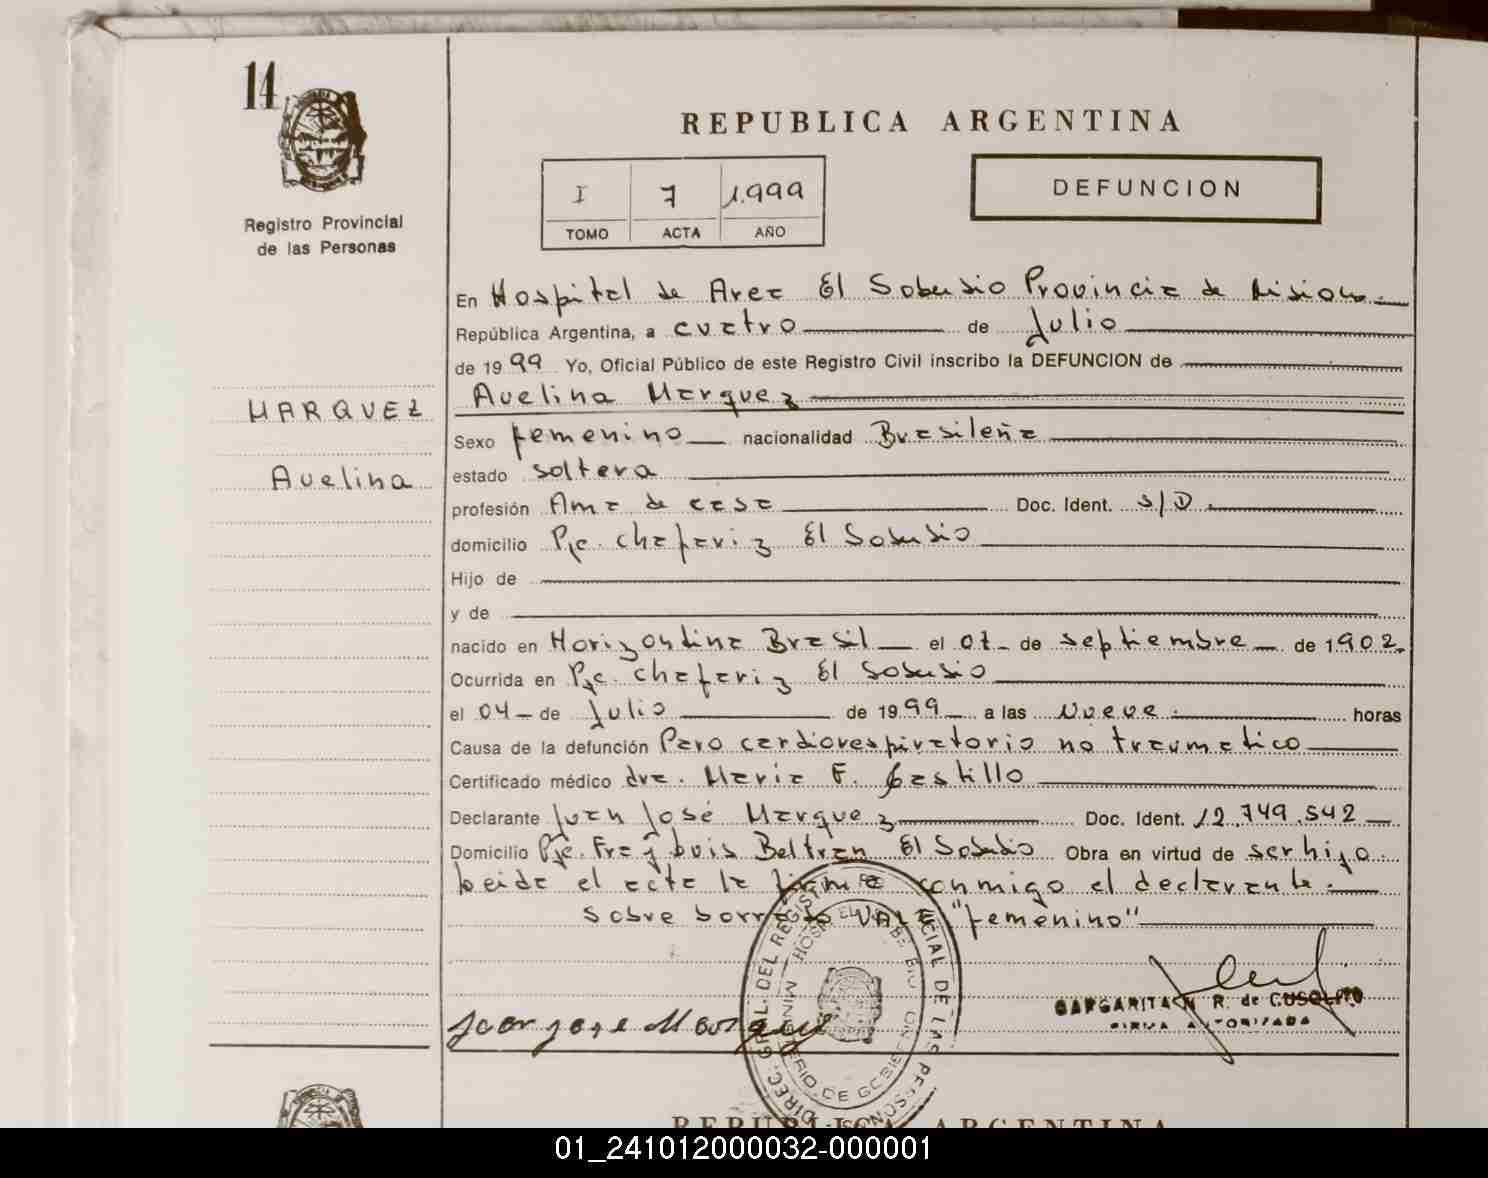 14
REPUBLICA ARGENTINA
I 7 1.999
TOMO ACTA AÑO
DEFUNCION
Registro Provincial
de las Personas
MARQUEZ
Avelina
En Hospital de Area El Soberbio Provincia de Misiones.
República Argentina, a cuatro de Julio
de 1999 Yo, Oficial Público de este Registro Civil inscribo la DEFUNCION de
Avelina Marquez
Sexo femenino nacionalidad Brasileña
estado soltera
profesión Ama de casa Doc. Ident. S/D.
domicilio Pje. chafariz El Soberbio
Hijo de
y de
nacido en Horizontina Brasil el 07 de septiembre de 1902.
Ocurrida en Pje. chafariz El Soberbio
el 04 de Julio de 1999 a las Nueve. horas
Causa de la defunción Paro cardiorespiratorio no traumatico
Certificado médico dra. Maria F. Castillo
Declarante Juan José Marquez Doc. Ident. 12.749.542
Domicilio Pje. Fray Luis Beltran El Soberbio Obra en virtud de ser hijo.
Leida el acta la firma conmigo el declarante.
Sobre borrado VALE "femenino"
Juan Jose Marquez
MARGARITA R. de CUSOLITO
FIRMA AUTORIZADA
DIREC. GRAL. DEL REGISTRO DE LAS PERSONAS
MINISTERIO DE GOBIERNO
REPUBLICA ARGENTINA
01_241012000032-000001